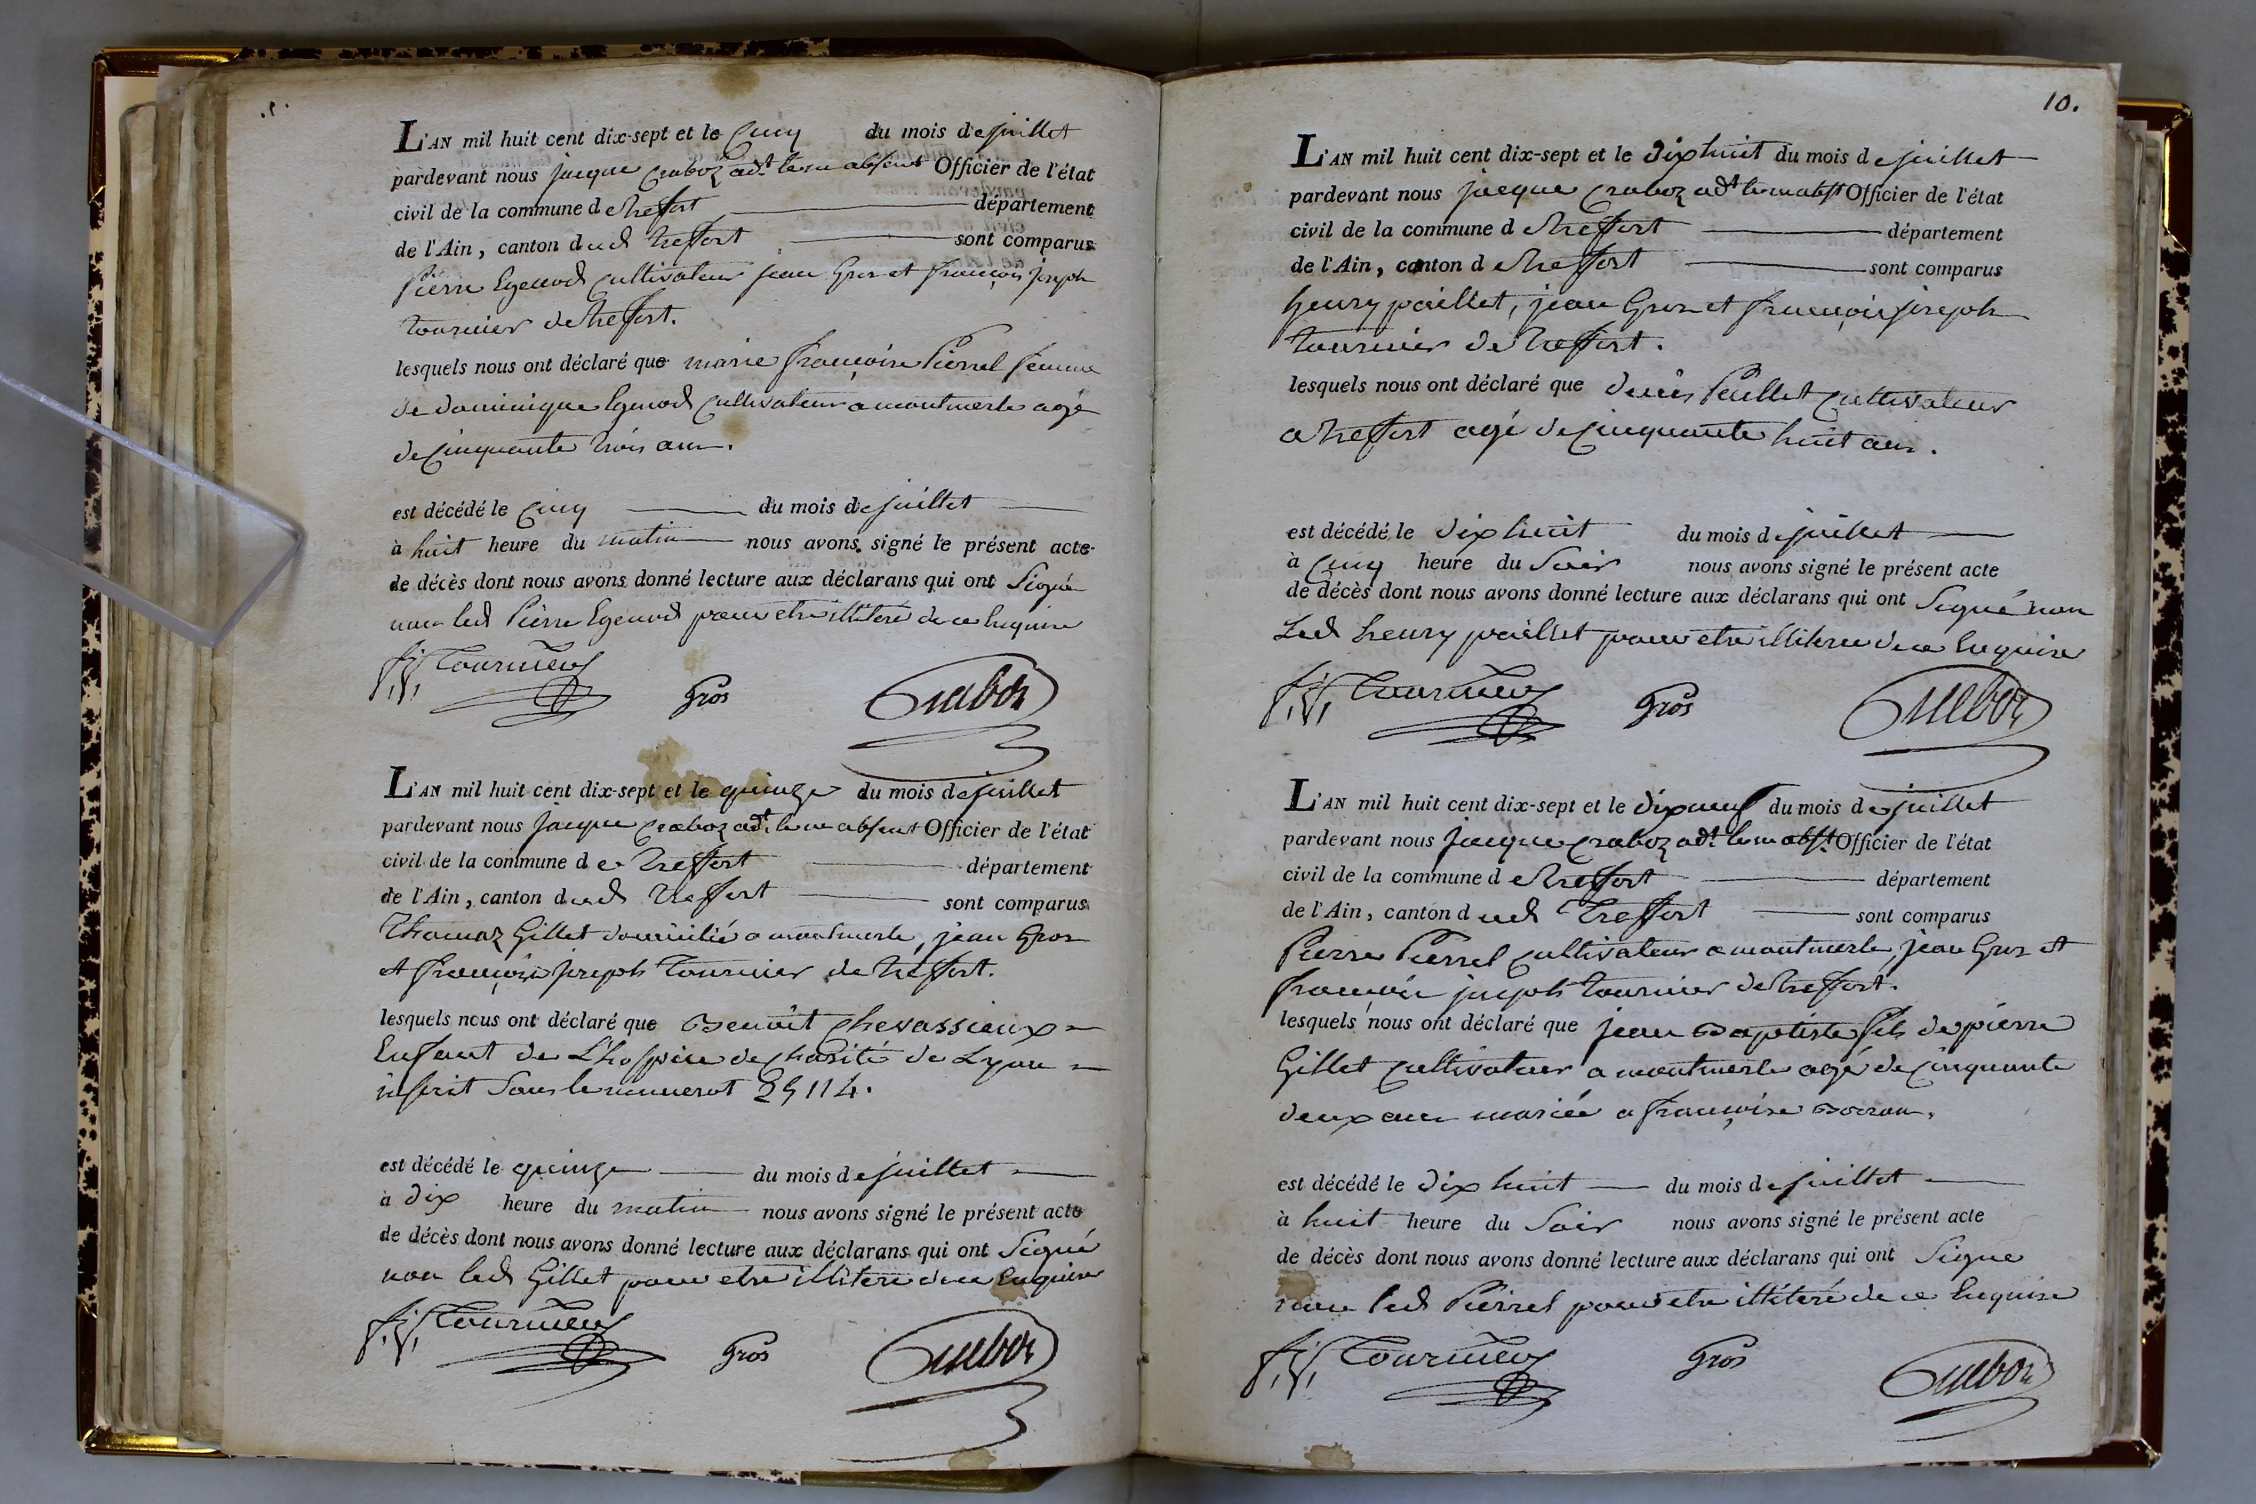 L'AN mil huit cent dix-sept et le Cinq du mois de juillet
pardevant nous jacque Craboz adt. le m absent Officier de l'état
civil de la commune de treffort département
de l'Ain, canton dud treffort sont comparus
Pierre Egenod Cultivateur jean Gros et françois joseph
tournier de treffort.
lesquels nous ont déclaré que marie françoise Pierrel femme
de dominique Egenod Cultivateur a montmerle agé
de Cinquante trois ans.
est décédé le Cinq du mois de juillet
à huit heure du matin nous avons signé le présent acte
de décès dont nous avons donné lecture aux déclarans qui ont Signé
non led Pierre Egenod pour etre illiteré de ce Enquire
f. j. Tournier
Gros
Craboz
L'AN mil huit cent dix-sept et le quinze du mois de juillet
pardevant nous jacque Craboz adt. le m absent Officier de l'état
civil de la commune de treffort département
de l'Ain, canton dud treffort sont comparus
Thomaz Gillet domicilié a montmerle, jean Gros
et françois joseph tournier de treffort.
lesquels nous ont déclaré que Benoit Chevassieux
Enfant de L'hospice de Charité de Lyon
inscrit Sous le numerot 29114.
est décédé le quinze du mois de juillet
à dix heure du matin nous avons signé le présent acte
de décès dont nous avons donné lecture aux déclarans qui ont Signé
non led Gillet pour etre illiteré de ce Enquire
f. j. Tournier
Gros
Craboz
10.
L'AN mil huit cent dix-sept et le dixhuit du mois de juillet
pardevant nous jacque Craboz adt le m abst Officier de l'état
civil de la commune de treffort département
de l'Ain, canton de treffort sont comparus
henry paillet, jean Gros et françois joseph
tournier de treffort.
lesquels nous ont déclaré que denis Paillet Cultivateur
a treffort agé de Cinquante huit ans.
est décédé le dix huit du mois de juillet
à Cinq heure du Soir nous avons signé le présent acte
de décès dont nous avons donné lecture aux déclarans qui ont Signé non
Led henry paillet pour etre illitere de ce Enquire
f. j. Tournier
Gros
Craboz
L'AN mil huit cent dix-sept et le dixneuf du mois de juillet
pardevant nous jacque Craboz adt. le m abst. Officier de l'état
civil de la commune de treffort département
de l'Ain, canton dud treffort sont comparus
Pierre Pierrel Cultivateur a montmerle, jean Gros et
françois joseph tournier de treffort.
lesquels nous ont déclaré que jean Baptiste fils de pierre
Gillet Cultivateur a montmerle agé de Cinquante
deux ans mariée a françoise Borron.
est décédé le dix huit du mois de juillet
à huit heure du Soir nous avons signé le présent acte
de décès dont nous avons donné lecture aux déclarans qui ont Signe
non led Pierrel pour etre illiteré de ce Enquire
f. j. Tournier
Gros
Craboz